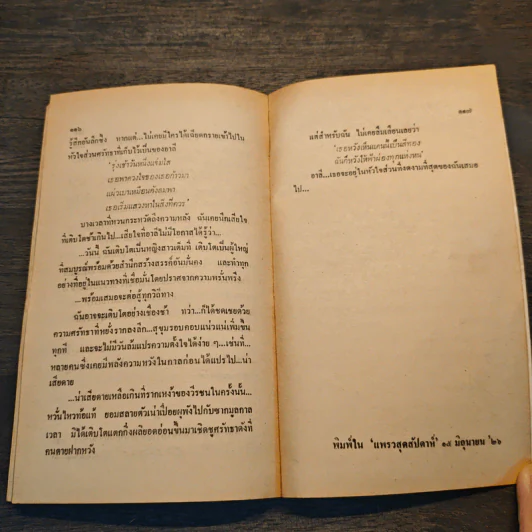 ๑๑๖
รู้สึกอันลึกซึ้ง หากแต่...ไม่เคยมีใครได้เฉียดกรายเข้าไปใน
หัวใจส่วนศรัทธาที่เก็บไว้เป็นของอาลี
'รุ่งเช้าวันหนึ่งแจ่มใส
เธอพาดวงใจของเธอก้าวมา
แผ้วเบาเหมือนดังลมพา
เธอเริ่มแสวงหาในสิ่งที่ควร'
บางเวลาที่หวนกระหวัดถึงความหลัง ฉันเคยนึกเสียใจ
ที่เติบโตช้าเกินไป...เสียใจที่อาลีไม่มีโอกาสได้รู้ว่า...
...วันนี้ ฉันเติบโตเป็นหญิงสาวเต็มที่ เติบโตเป็นผู้ใหญ่
ที่สมบูรณ์พร้อมด้วยสำนึกสร้างสรรค์อันมั่นคง และทำทุก
อย่างที่อยู่ในแนวทางที่เชื่อมั่นโดยปราศจากความพรั่นพรึง
...พร้อมเสมอจะต่อสู้ทุกวิถีทาง
ฉันอาจจะเติบโตอย่างเชื่องช้า ทว่า...ก็ได้ชดเชยด้วย
ความศรัทธาที่หยั่งรากลงลึก...สุขุมรอบคอบแน่วแน่เพิ่มขึ้น
ทุกที และจะไม่มีวันล้มแปรความตั้งใจได้ง่าย ๆ...เช่นที่...
หลายคนซึ่งเคยมีพลังความหวังในกาลก่อนได้แปรไป...น่า
เสียดาย
...น่าเสียดายเหลือเกินที่รากเหง้าของวีรชนในครั้งนั้น...
หวั่นไหวท้อแท้ ยอมสลายตัวเน่าเปื่อยผุพังไปกับซากมูลกาล
เวลา มิได้เติบโตแตกกิ่งผลิยอดอ่อนขึ้นมาเชิดชูศรัทธาดังที่
คนตายฝากหวัง
๑๑๗
แต่สำหรับฉัน ไม่เคยลืมเลือนเลยว่า
'เธอหวังเห็นแดนนี้เป็นสีทอง
ฉันก็หวังได้ค้ำผ่องทุกแห่งหน'
อาลี...เธอจะอยู่ในหัวใจส่วนที่งดงามที่สุดของฉันเสมอ
ไป...
พิมพ์ใน 'แพรวสุดสัปดาห์' ๑๕ มิถุนายน '๒๖